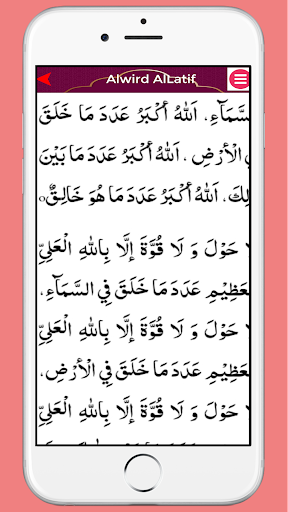 Alwird AlLatif
السَّمَآءِ، اَللّٰهُ أَكْبَرُ عَدَدَ مَا خَلَقَ
فِي الْأَرْضِ، اَللّٰهُ أَكْبَرُ عَدَدَ مَا بَيْنَ
اَللّٰهُ أَكْبَرُ عَدَدَ مَا هُوَ خَالِقٌ
حَوْلَ وَ لَا قُوَّةَ إِلَّا بِاللّٰهِ الْعَلِيِّ
عَدَدَ مَا خَلَقَ فِي السَّمَآءِ،
حَوْلَ وَ لَا قُوَّةَ إِلَّا بِاللّٰهِ الْعَلِيِّ
عَدَدَ مَا خَلَقَ فِي الْأَرْضِ،
حَوْلَ وَ لَا قُوَّةَ إِلَّا بِاللّٰهِ الْعَلِيِّ